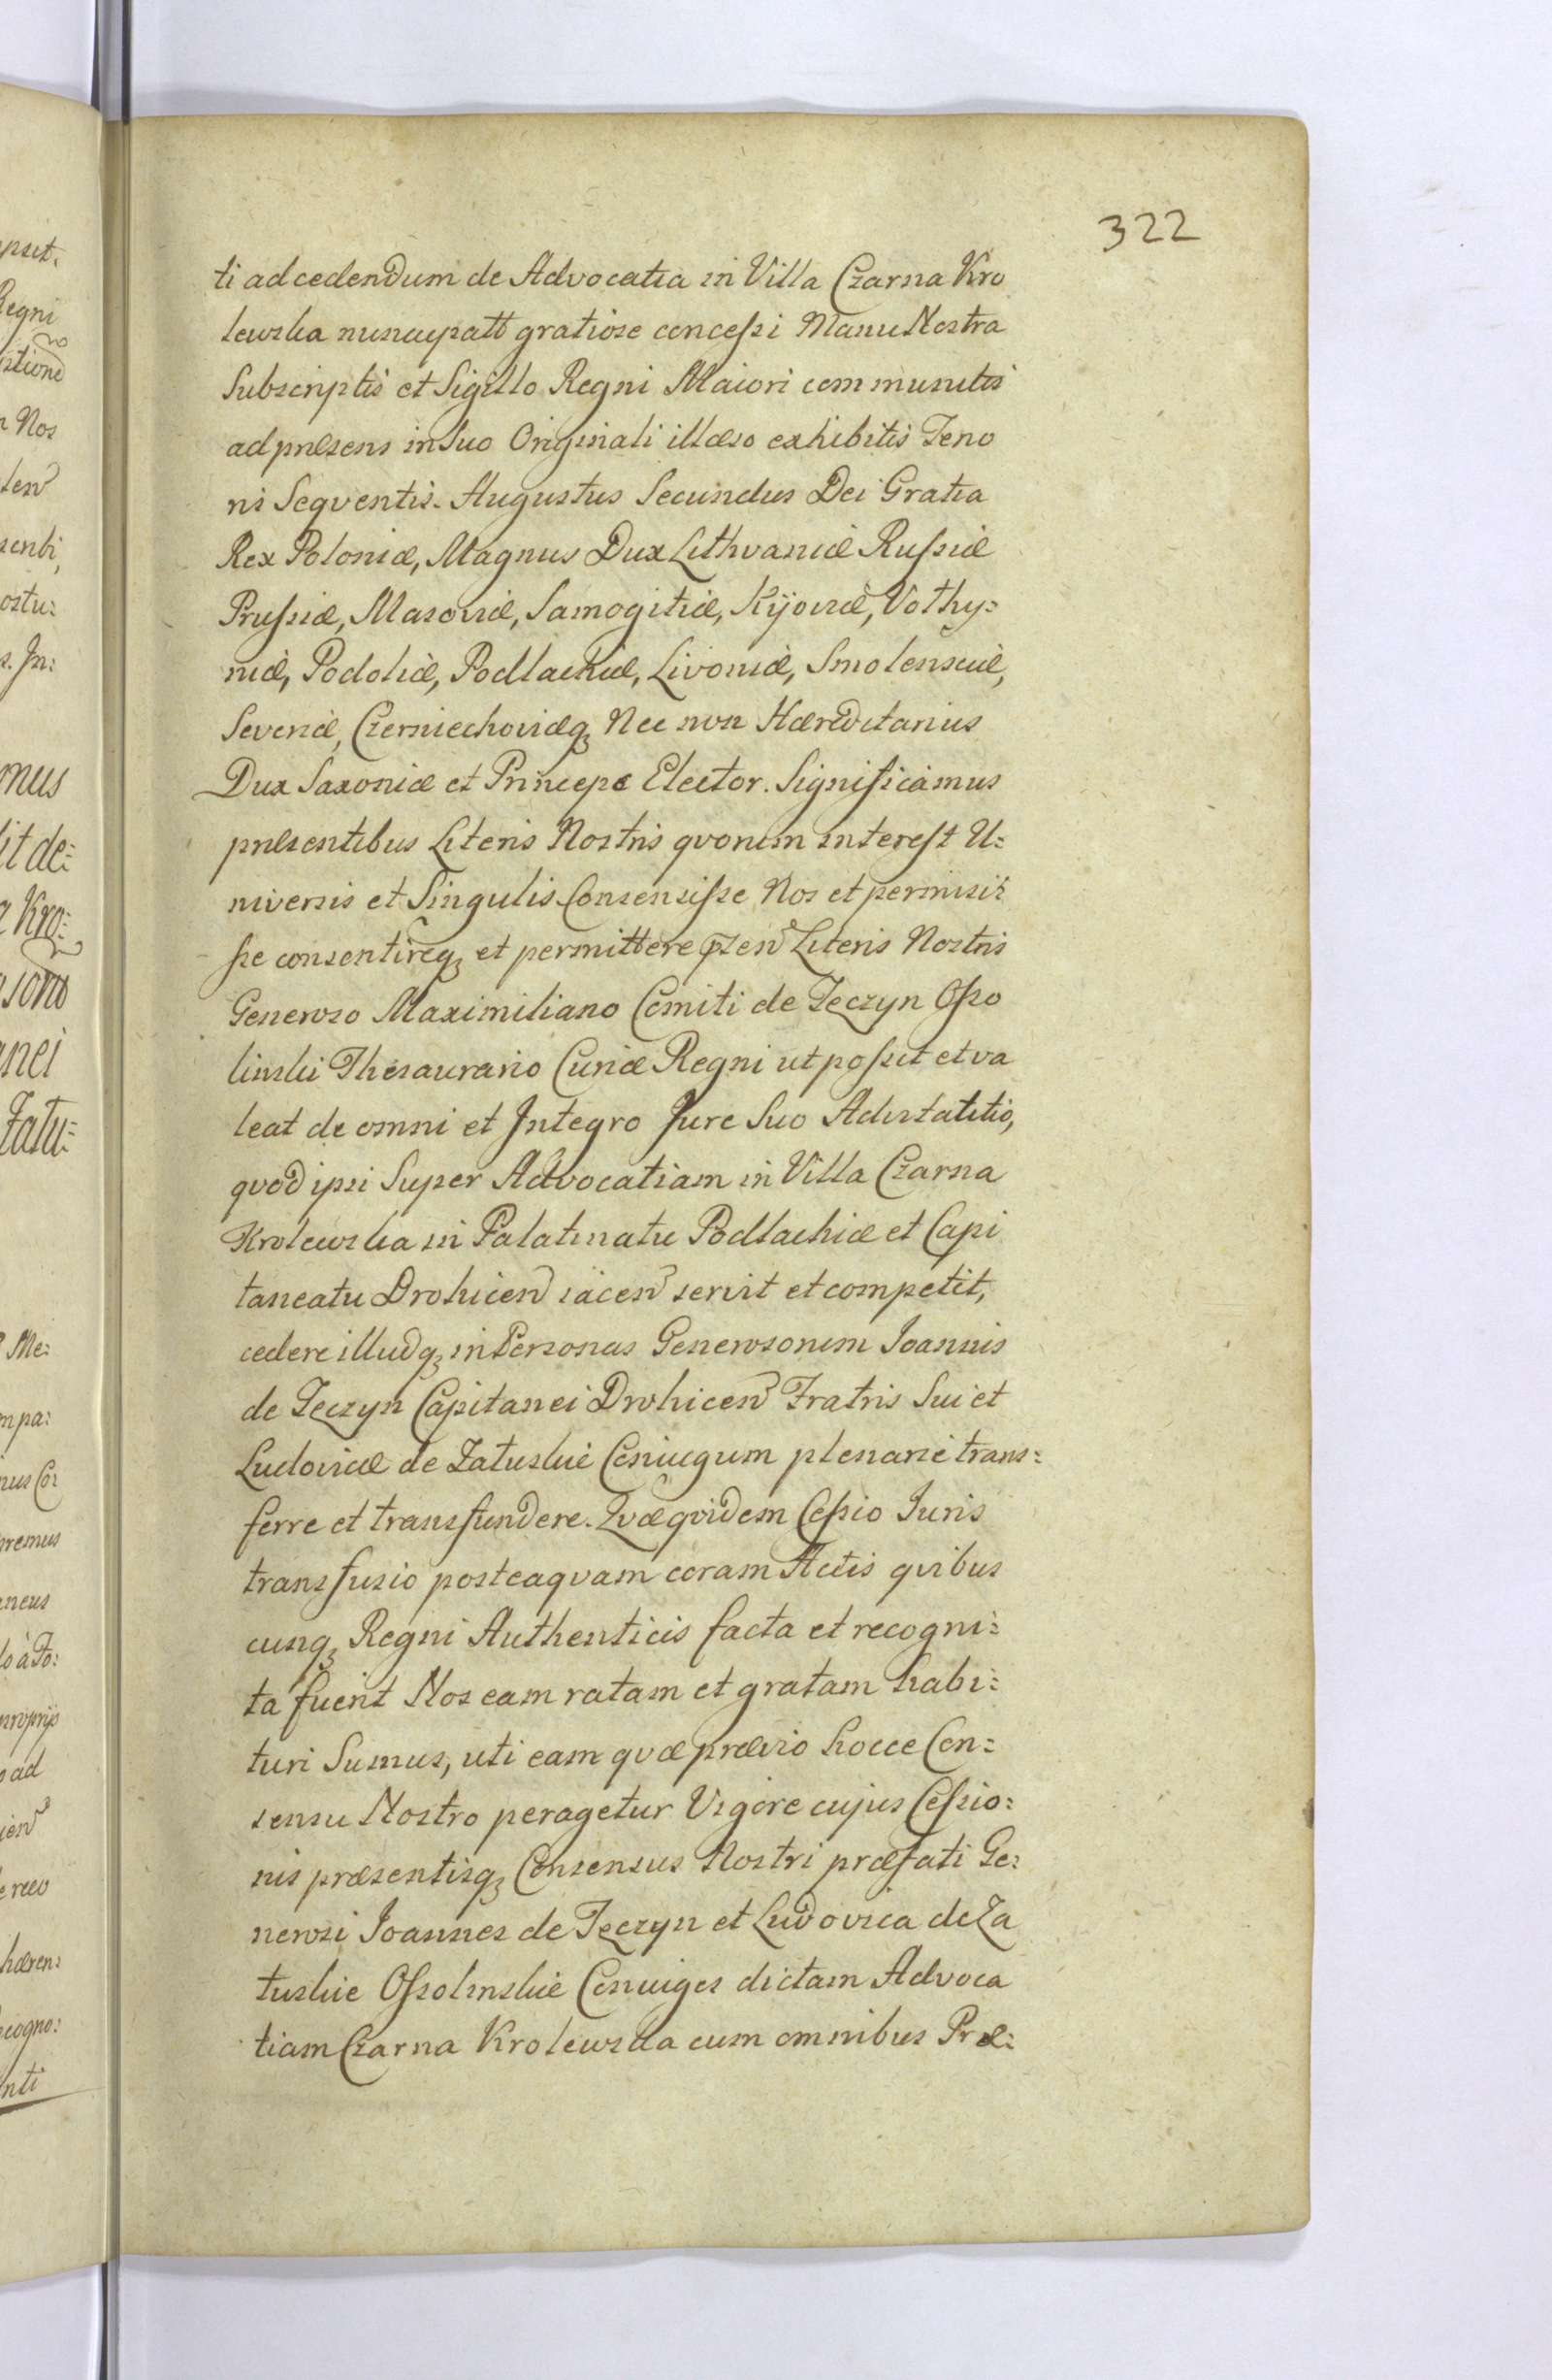 322
ti ad cedendum de Advocatia in Villa Czarna Kro
lewska nuncupatt gratiose concessi Manu Nostra
Subscriptis et Sigillo Regni Maiori communitis
ad præsens in Suo Originali illæso exhibitis Teno
ris Seqventis. Augustus Secundus Dei Gratia
Rex Poloniæ, Magnus Dux Lithvaniæ Russiæ
Prussiæ, Masoviæ, Samogitiæ, Kijoviæ, Volhy=
niæ, Podoliæ, Podlachiæ, Livoniæ, Smolensciæ,
Severiæ, Czerniechoviæq3 Nec non Hæreditarius
Dux Saxoniæ et Princeps Elector. Significamus
præsentibus Literis Nostris qvorum interest U=
niversis et Singulis Consensisse Nos et permisis=
se consentireq3 et permittere Literis Nostris
Generoso Maximiliano Comiti de Teczyn Osso
linski Thesaurario Curiæ Regni ut possit et va
leat de omni et Integro Jure Suo Advitalitio,
qvod ipsi Super Advocatiam in Villa Czarna
Krolewska in Palatinatu Podlachiæ et Capi
taneatu Drohicen iacen servit et competit,
cedere illudq3 in Personas Generosorum Joannis
de Teczyn Capitanei Drohicen Fratris Sui et
Ludovicæ de Zaluskie Coniugum plenarie trans=
ferre et transfundere. Qvæ qvidem Cessio Juris
transfusio posteaqvam coram Actis qvibus
cunq3 Regni Authenticis facta et recogni=
ta fuerit Nos eam ratam et gratam habi=
turi Sumus, uti eam qvæ prævio hocce Con=
sensu Nostro peragetur Vigore cujus Cessio=
nis præsentisq3 Consensus Nostri præfati Ge=
nerosi Joannes de Teczyn et Ludovica de Za
luskie Ossolinskie Coniuges dictam Advoca
tiam Czarna Krolewska cum omnibus Præ=